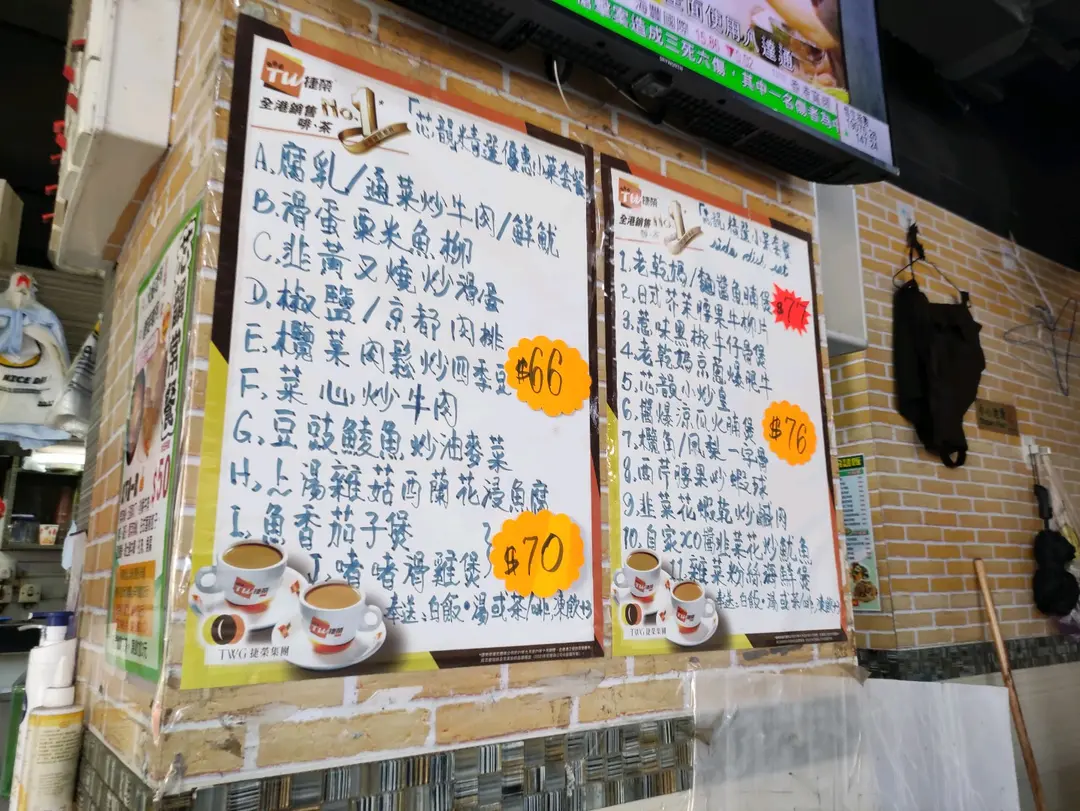 TW捷榮
全港銷售 No.1
啡·茶
「芯龍精選優惠小菜套餐
A.腐乳/通菜炒牛肉/鮮魷
B.滑蛋粟米魚柳
C.韭黃叉燒炒滑蛋
D.椒鹽/京都肉排
E.欖菜肉鬆炒四季豆
$66
F.菜心炒牛肉
G.豆豉鯪魚炒油麥菜
H.上湯雜菇西蘭花浸魚腐
I.魚香茄子煲
J.啫啫滑雞煲
$70
奉送:白飯·湯或茶/啡,凍飲+3
TWG 捷榮集團
TW捷榮
全港銷售 No.1
精選小菜套餐
side dish set
1.老乾媽/魚腩煲
$77
2.日式芥茉腰果牛柳片
3.惹味黑椒牛仔骨煲
4.老乾媽京蔥爆肥牛
5.芯龍小炒皇
6.醬爆涼瓜火腩煲
$76
7.欖角/鳳梨一字骨
8.西芹腰果炒蝦球
9.韭菜花蝦乾炒鹹肉
10.自家XO醬韭菜花炒魷魚
11.雜菜粉絲海鮮煲
奉送:白飯·湯或茶/啡,凍飲+3
TWG 捷榮集團
面使用八達通
海豐國際 15.86 ▼0.02
造成三死六傷,其中一名傷者為
常餐
$50
NICE DAY